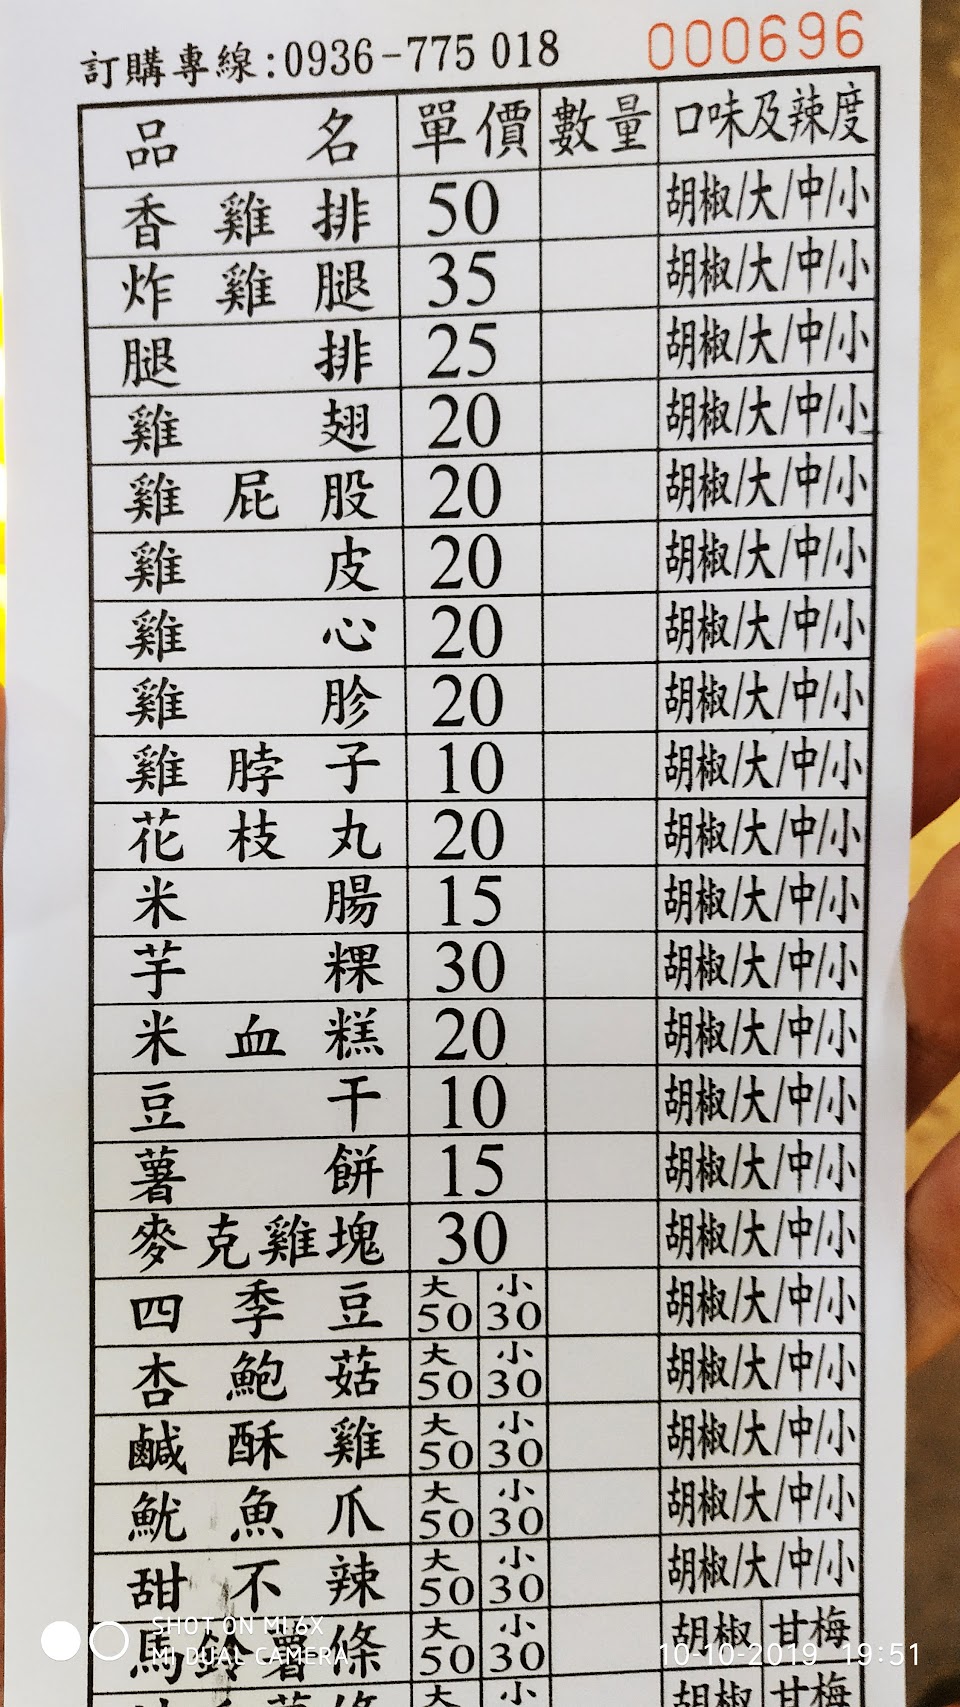 訂購專線:0936-775 018 000696
品名 單價 數量 口味及辣度
香雞排 50 胡椒/大/中/小
炸雞腿 35 胡椒/大/中/小
腿排 25 胡椒/大/中/小
雞翅 20 胡椒/大/中/小
雞屁股 20 胡椒/大/中/小
雞皮 20 胡椒/大/中/小
雞心 20 胡椒/大/中/小
雞胗 20 胡椒/大/中/小
雞脖子 10 胡椒/大/中/小
花枝丸 20 胡椒/大/中/小
米腸 15 胡椒/大/中/小
芋粿 30 胡椒/大/中/小
米血糕 20 胡椒/大/中/小
豆干 10 胡椒/大/中/小
薯餅 15 胡椒/大/中/小
麥克雞塊 30 胡椒/大/中/小
四季豆 大50 小30 胡椒/大/中/小
杏鮑菇 大50 小30 胡椒/大/中/小
鹹酥雞 大50 小30 胡椒/大/中/小
魷魚爪 大50 小30 胡椒/大/中/小
甜不辣 大50 小30 胡椒/大/中/小
馬鈴薯條 大50 小30 胡椒 甘梅
大 小 胡椒 甘梅
SHOT ON MI 6X
MI DUAL CAMERA
10-10-2019 19:51